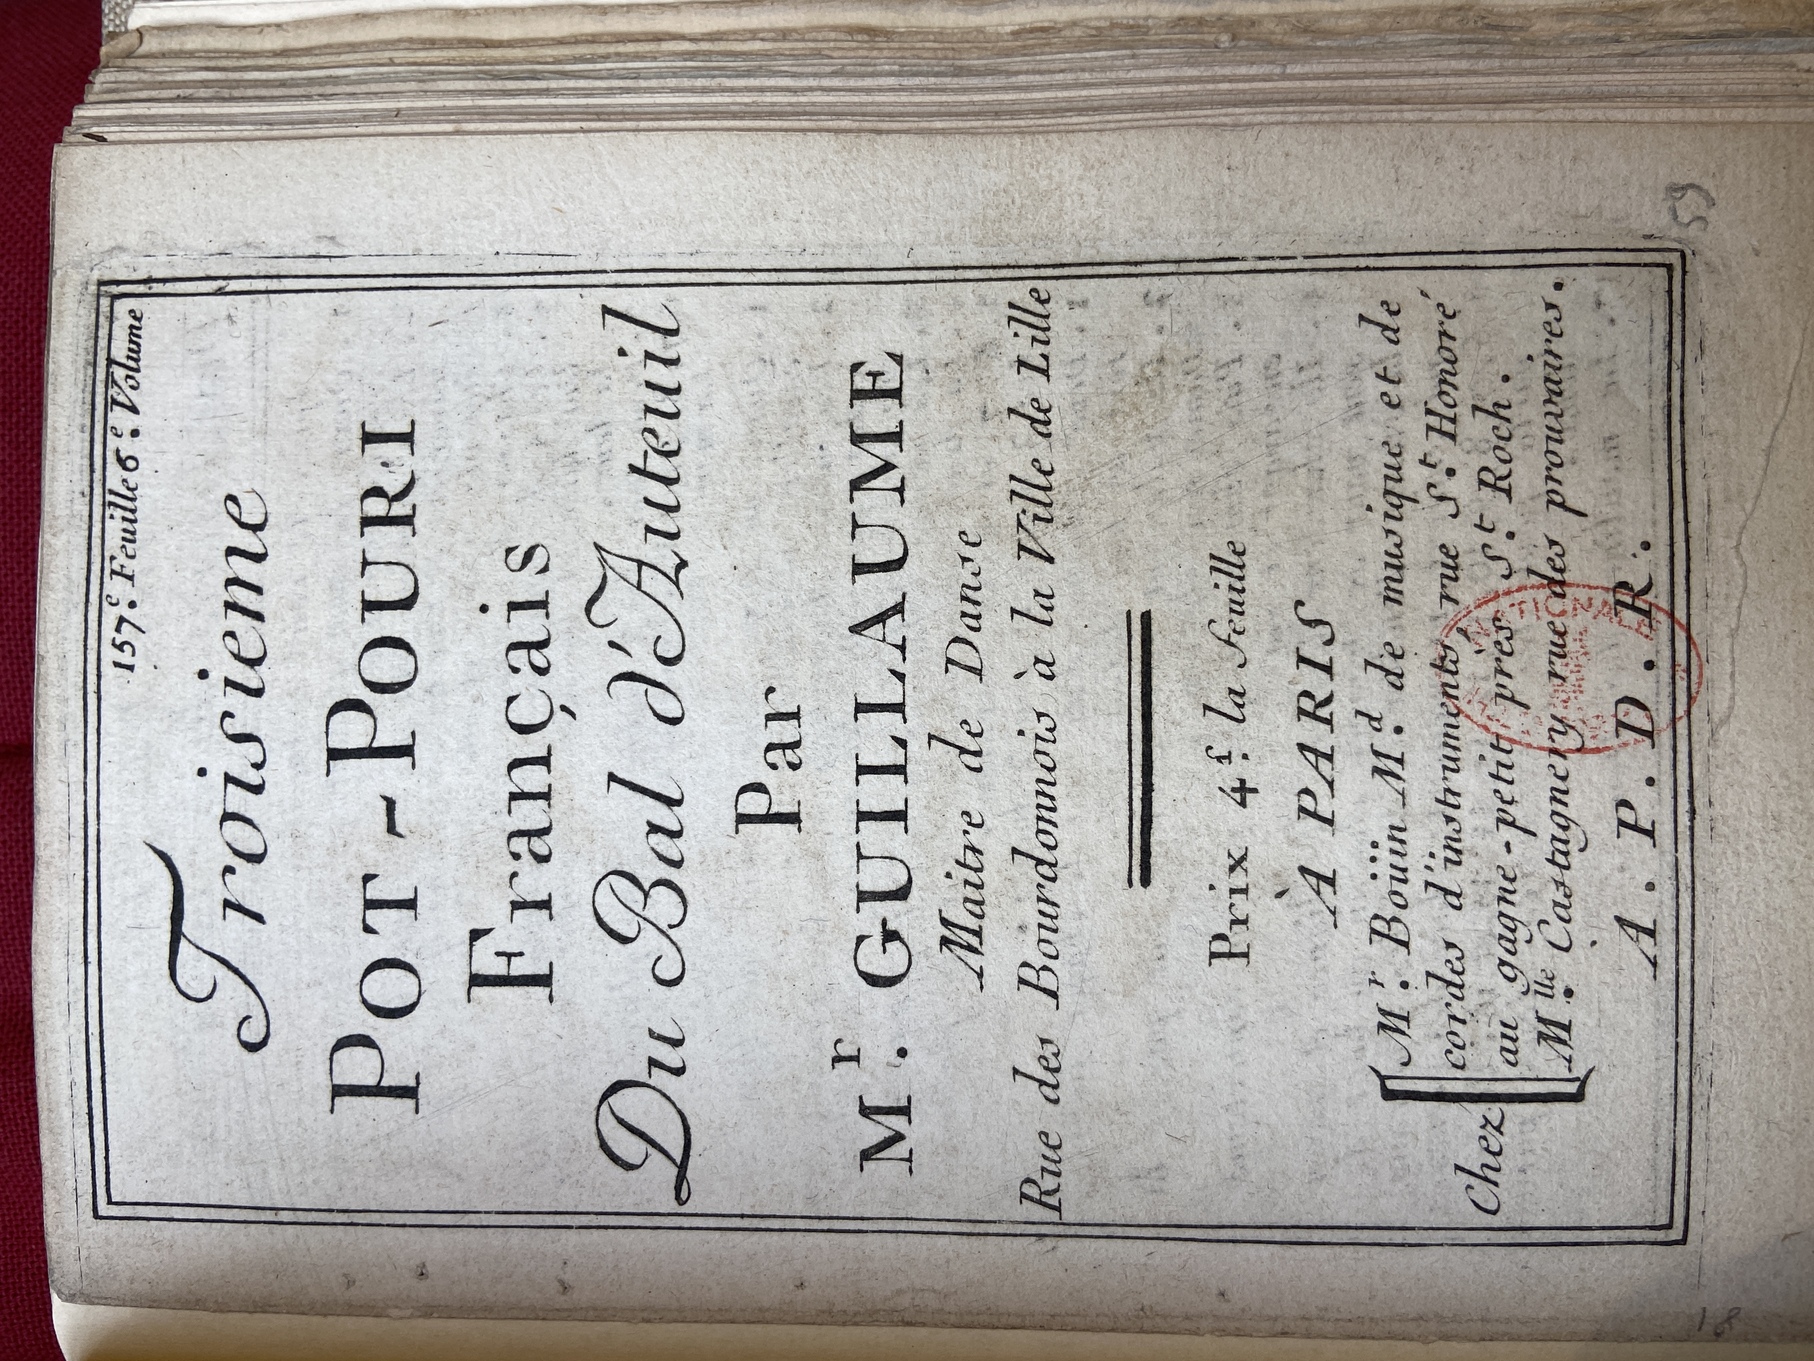 157.e Feuille 6.e Volume
Troisieme
POT-POURI
Français
Du Bal d'Auteuil
Par
M.r GUILLAUME
Maitre de Danse
Rue des Bourdonnois à la Ville de Lille
Prix 4.f la feuille
À PARIS
Chez
M.r Boüin M.d de musique et de
cordes d'instruments rue S.t Honoré
au gagne-petit près S.t Roch.
M.lle Castagnery rue des prouvaires.
A.P.D.R.
59
18